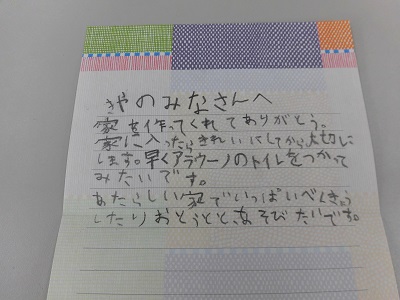 きやのみなさんへ
家を作ってくれてありがとう。
家に入ったらきれいにしてから大切に
します。早くアラウーノのトイレをつかって
みたいです。
あたらしい家でいっぱいべんきょう
したりおとうととあそびたいです。